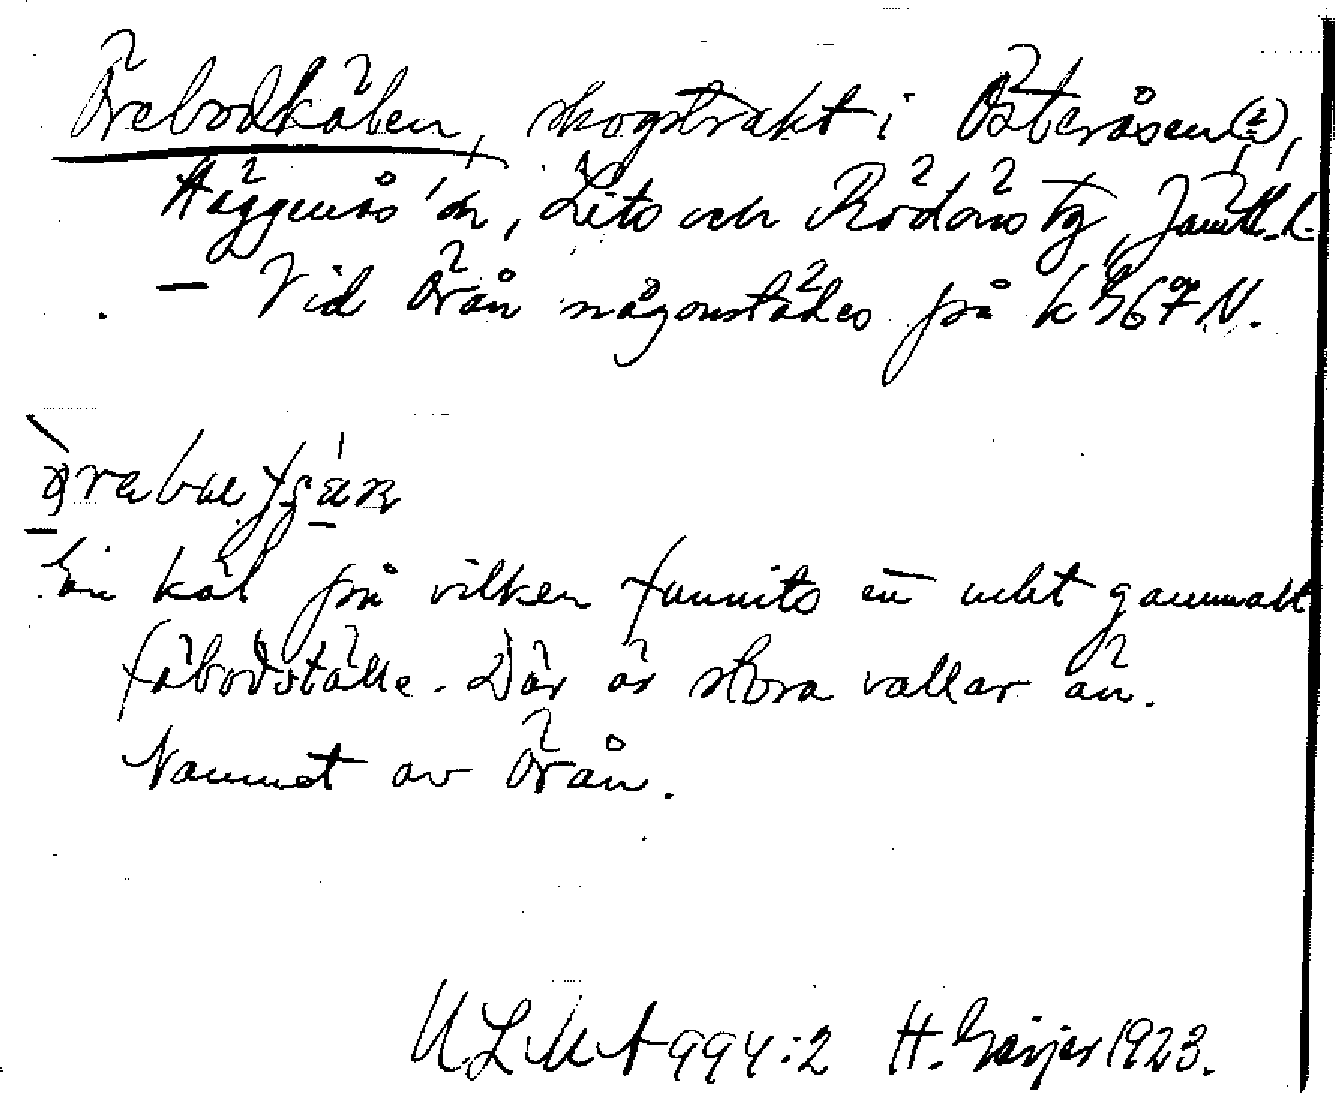 Örebodkälen, skogstrakt i Österåsen(?),
Häggenås sn, Lits och Rödöns tg, Jämtl. l.
– Vid Örån någonstädes på k 567 N.
En käl på vilken funnits ett urlit gammalt
fäbodställe. Där är stora vallar än.
Namnet av Örån.
ULMA 994:2 H. Geijer 1923.